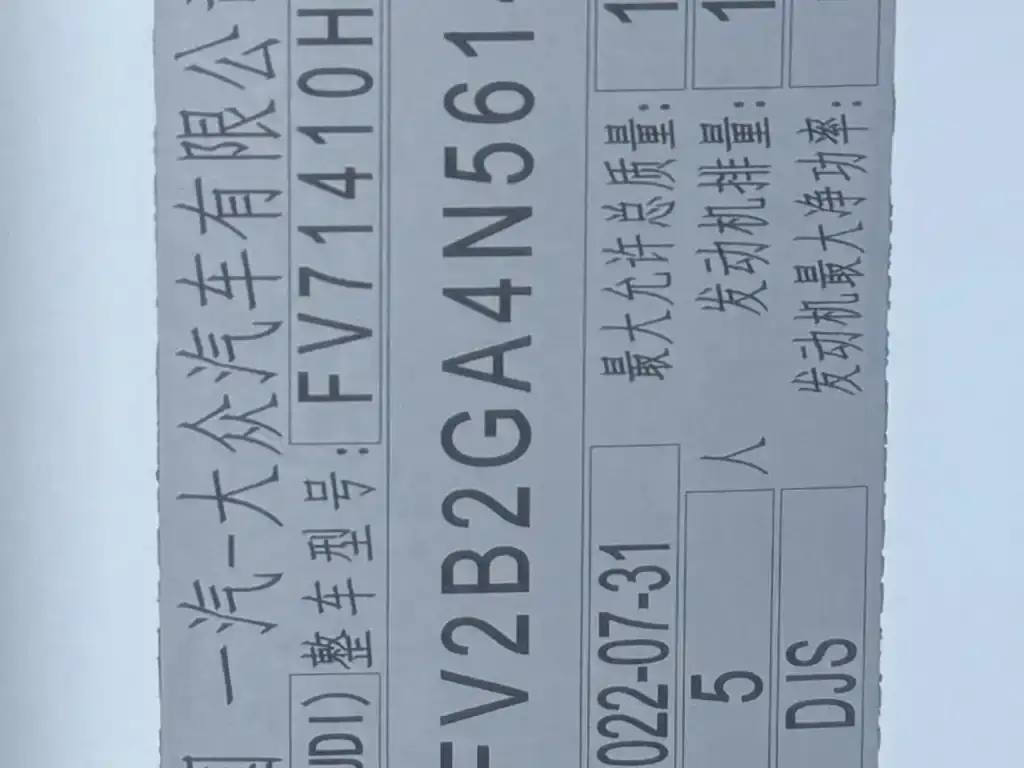 一汽-大众汽车有限公
UDI) 整车型号: FV71410H
FV2B2GA4N561
022-07-31 最大允许总质量: 1
5 人 发动机排量: 1
DJS 发动机最大净功率: